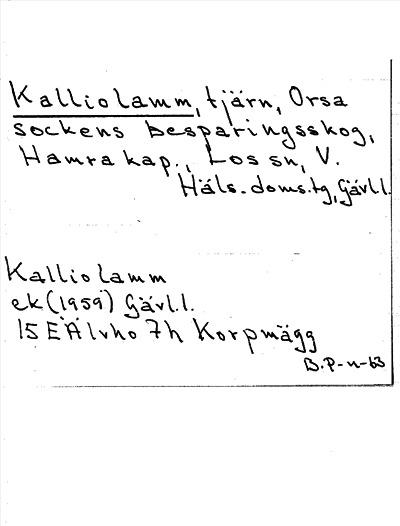 Kalliolamm, tjärn, Orsa
sockens besparingsskog,
Hamra kap., Los sn, V.
Häls. doms.tg, Gävl.l.
Kalliolamm
ek (1959) Gävl.l.
15 E Älvho 7h Korpmägg
B.P-n-63